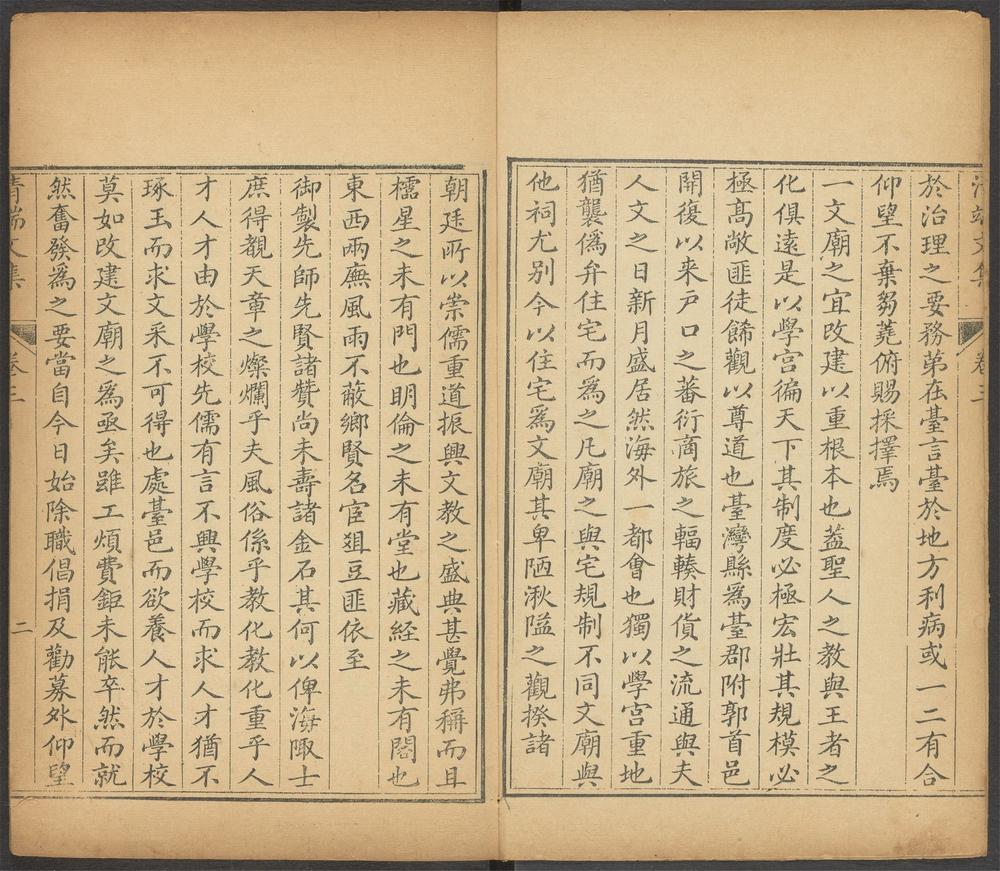 清端文集
卷三
於治理之要務第在臺言臺於地方利病或一二有合
仰望不棄芻蕘俯賜採擇焉
一文廟之宜改建以重根本也蓋聖人之教與王者之
化俱遠是以學宮徧天下其制度必極宏壯其規模必
極高敞匪徒餙觀以尊道也臺灣縣為臺郡附郭首邑
開復以来戸口之蕃衍商旅之輻輳財貨之流通與夫
人文之日新月盛居然海外一都會也獨以學宮重地
猶襲僞弁住宅而為之凡廟之與宅規制不同文廟與
他祠尤别今以住宅為文廟其卑陋湫隘之觀揆諸
朝廷所以崇儒重道振興文教之盛典甚覺弗稱而且
櫺星之未有門也明倫之未有堂也藏経之未有閣也
東西兩廡風雨不蔽鄉賢名宦爼豆匪依至
御製先師先賢諸贊尚未壽諸金石其何以俾海陬士
庶得覩天章之燦爛乎夫風俗係乎教化教化重乎人
才人才由於學校先儒有言不興學校而求人才猶不
琢玉而求文采不可得也處臺邑而欲養人才於學校
莫如改建文廟之為亟矣雖工煩費鉅未能卒然而就
然奮發為之要當自今日始除職倡捐及勸募外仰望
清端文集
卷三
二